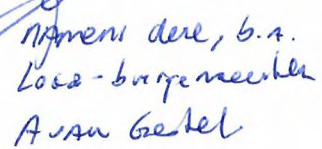 namens deze, b.a.
Loco-burgemeester
A van Gestel